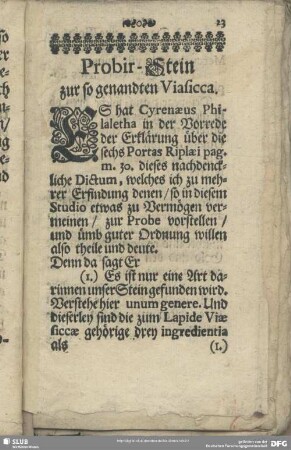 23
Probir-Stein
zur so genandten Viasicca.
ES hat Cyrenæus Phi-
laletha in der Vorrede
der Erklärung über die
sechs Portas Riplæi pag.
m. 30. dieses nachdenck-
liche Dictum, welches ich zu meh-
rer Erfindung denen / so in diesem
Studio etwas zu Vermögen ver-
meinen / zur Probe vorstellen /
und ümb guter Ordnung willen
also theile und deute.
Denn da sagt Er
(1.) Es ist nur eine Art da-
rinnen unser Stein gefunden wird.
Verstehe hier unum genere. Und
dieserley sind die zum Lapide Viæ
siccæ gehörige drey ingredientia
als (1.)
SLUB
DFG